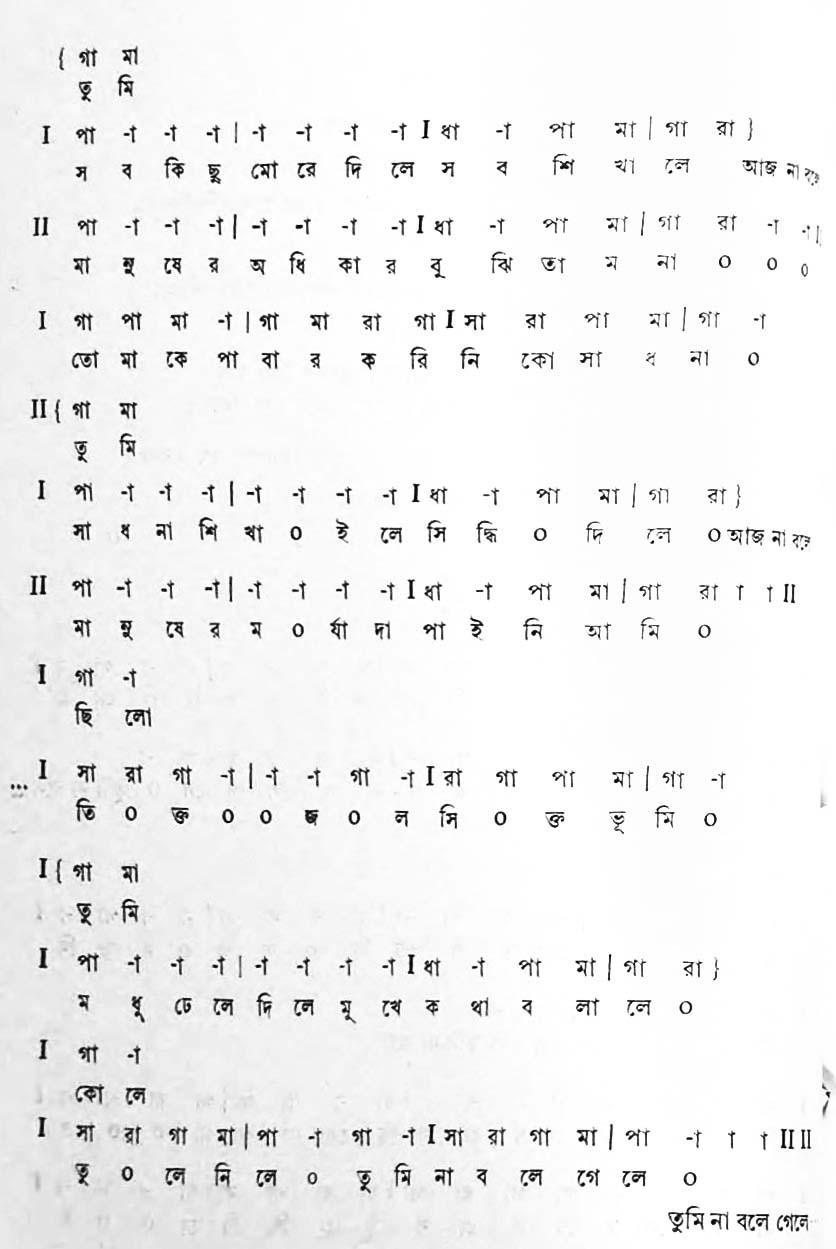 { গা মা
তু মি
I পা -া -া -া | -া -া -া -া I ধা -া পা মা | গা রা }
স ব কি ছু মো রে দি লে স ব শি খা লে আজ না বলে
II পা -া -া -া | -া -া -া -া I ধা -া পা মা | গা রা -া -া I
মা নু ষে র অ ধি কা র বু ঝি তা ম না ০ ০ ০
I গা পা মা -া | গা মা রা গা I সা রা পা মা | গা -া
তো মা কে পা বা র ক রি নি কো সা ধ না ০
II { গা মা
তু মি
I পা -া -া -া | -া -া -া -া I ধা -া পা মা | গা রা }
সা ধ না শি খা ০ ই লে সি দ্ধি ০ দি লে ০ আজ না বলে
II পা -া -া -া | -া -া -া -া I ধা -া পা মা | গা রা া া II
মা নু ষে র ম ০ র্যা দা পা ই নি আ মি ০
I গা -া
ছি লো
... I সা রা গা -া | -া -া গা -া I রা গা পা মা | গা -া
তি ০ ক্ত ০ ০ জ ০ ল সি ০ ক্ত ভূ মি ০
I { গা মা
তু মি
I পা -া -া -া | -া -া -া -া I ধা -া পা মা | গা রা }
ম ধু ঢে লে দি লে মু খে ক থা ব লা লে ০
I গা -া
কো লে
I সা রা গা মা | পা -া গা -া I সা রা গা মা | পা -া া া II II
তু ০ লে নি লে ০ তু মি না ব লে গে লে ০
তুমি না বলে গেলে